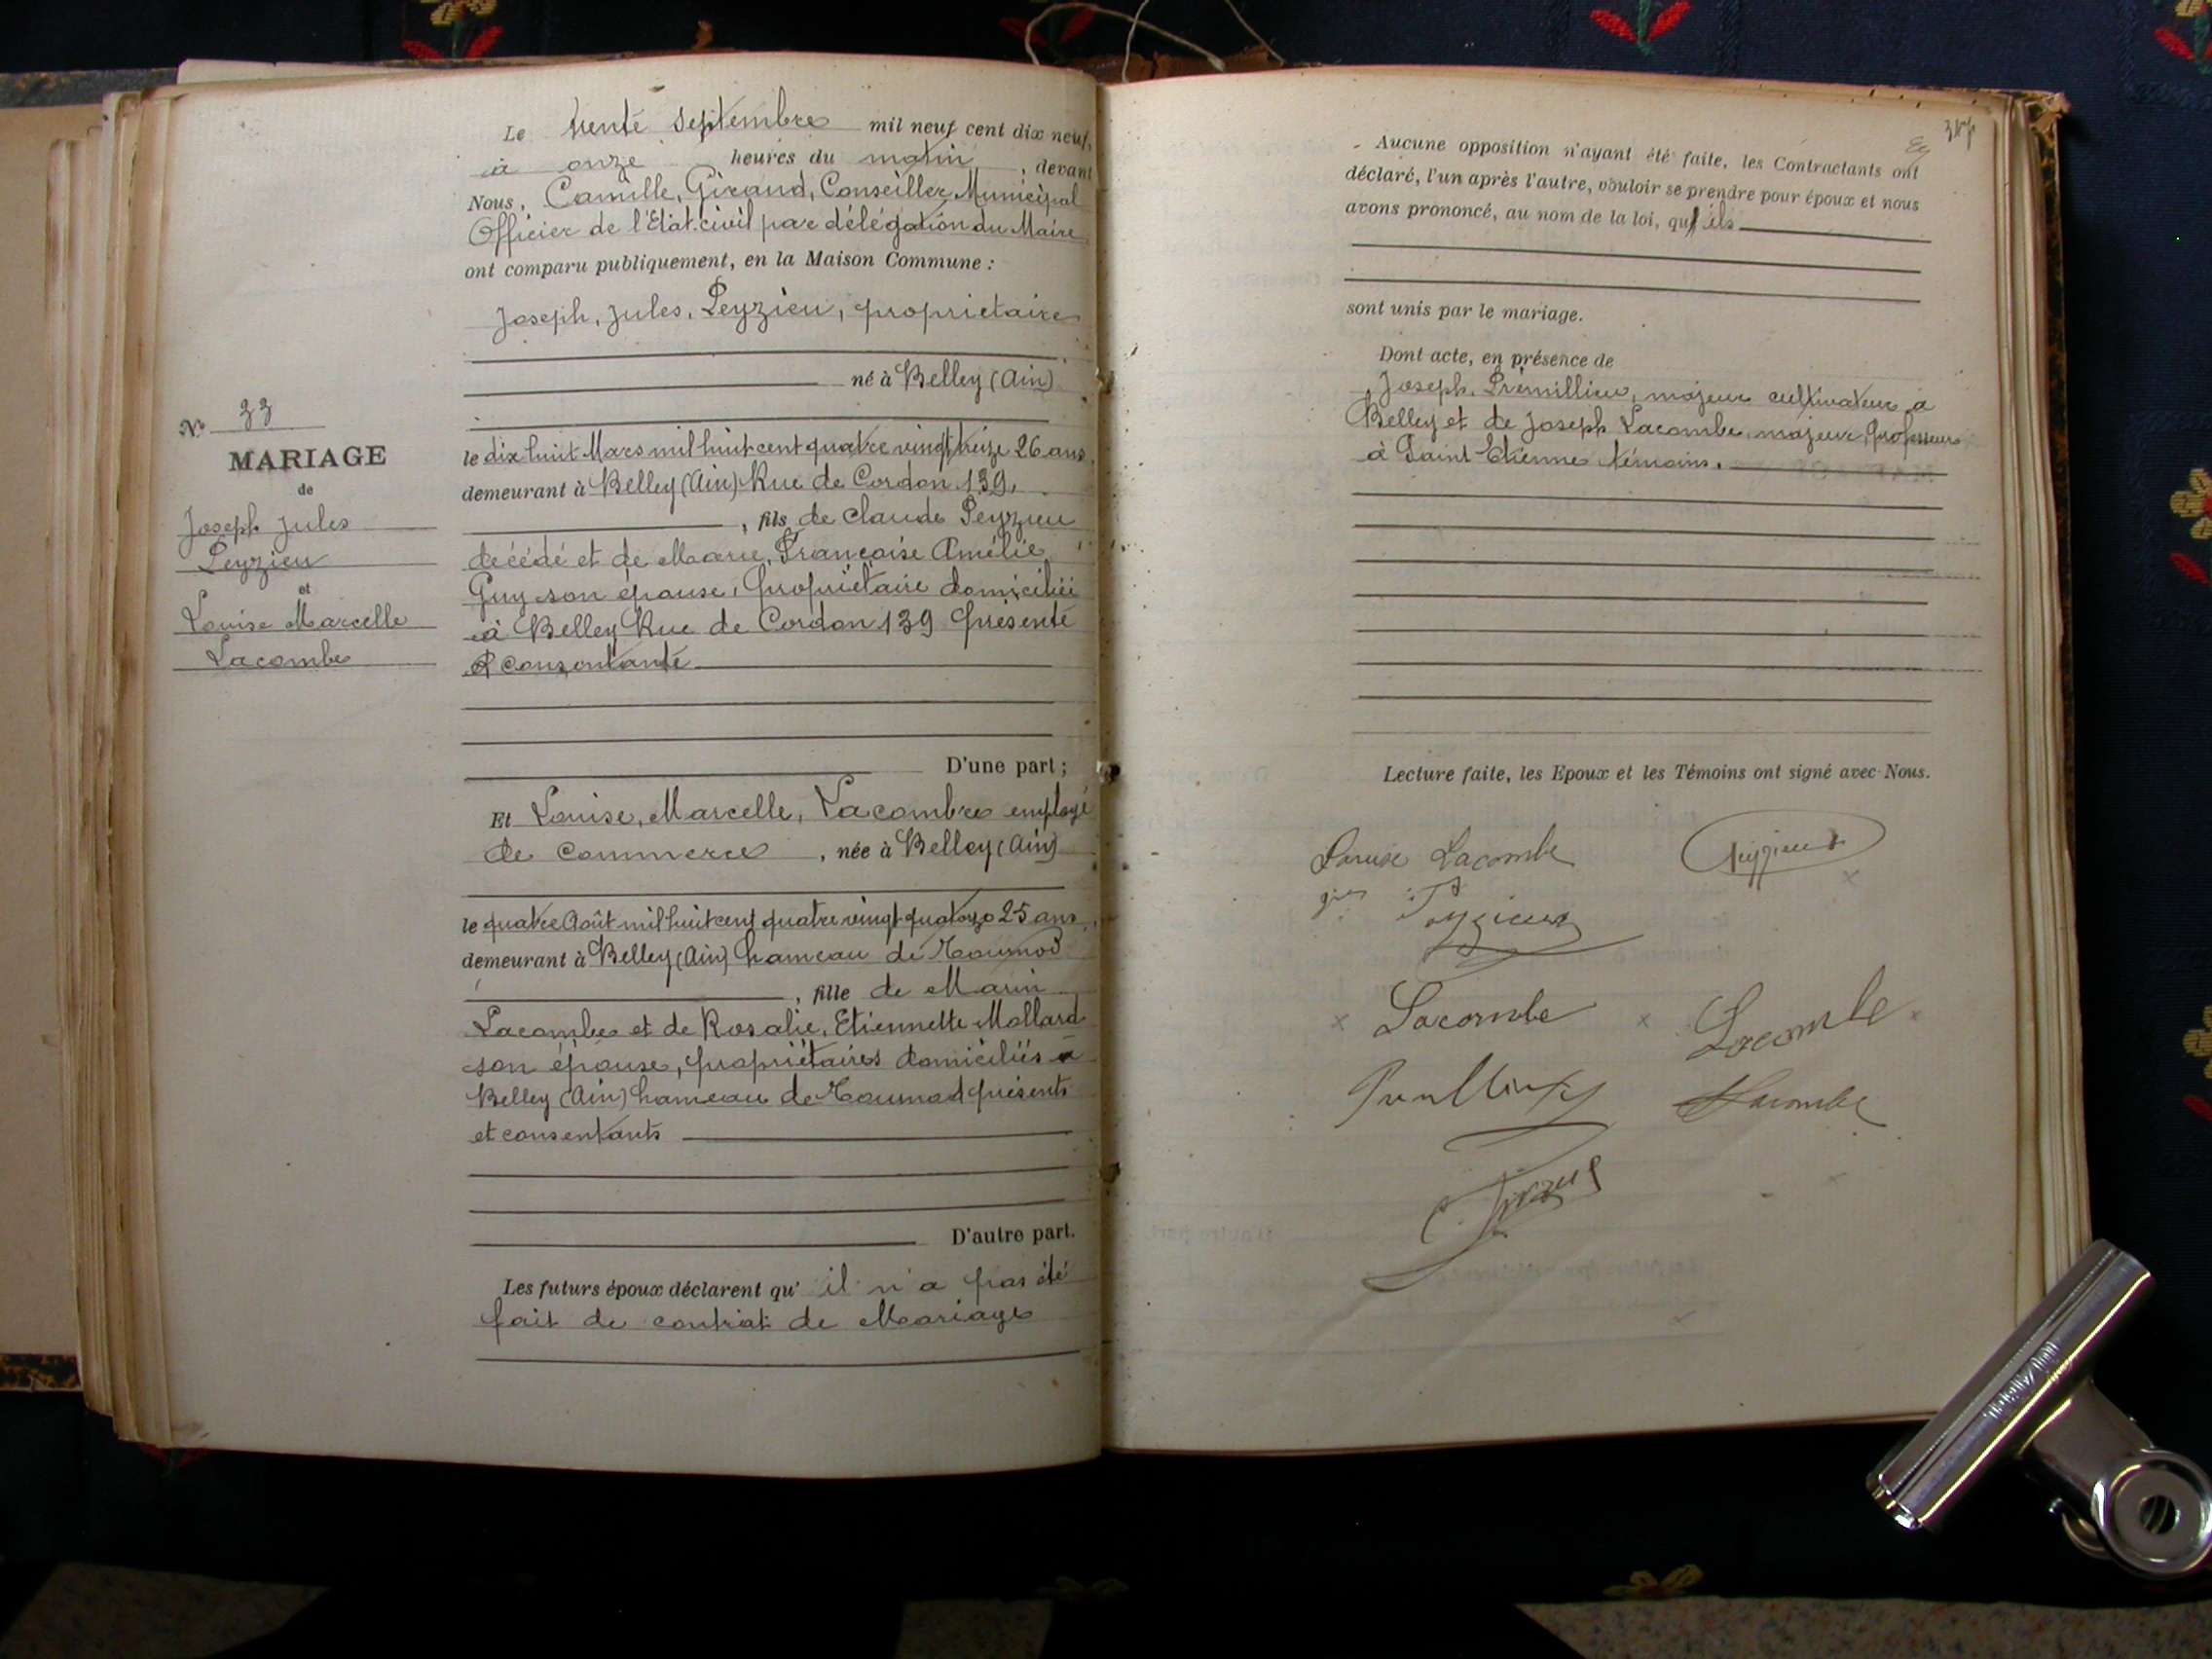 Le trente Septembre mil neuf cent dix neuf,
à onze heures du matin, devant
Nous, Camille, Giraud, Conseiller Municipal
Officier de l'Etat-civil par délégation du Maire
ont comparu publiquement, en la Maison Commune :
Joseph, Jules, Peyzieu, proprietaire
né à Belley (Ain)
N° 33
MARIAGE
de
Joseph Jules
Peyzieu
et
Louise Marcelle
Lacombe
le dix huit Mars mil huit cent quatre vingt treize 26 ans,
demeurant à Belley (Ain) Rue de Cordon 139,
, fils de Claude Peyzieu
décédé et de Marie, Françoise Amélie
Guy son épouse, Propriétaire domiciliée
à Belley Rue de Cordon 139 Présente
et consentante
D'une part ;
Et Louise, Marcelle, Lacombe employé
de Commerce, née à Belley (Ain)
le quatre Août mil huit cent quatre vingt quatorze 25 ans,
demeurant à Belley (Ain) hameau de
, fille de Marin
Lacombe et de Rosalie, Etiennette Mollard
son épouse, propriétaires domiciliés à
Belley (Ain) hameau de présents
et consentants
D'autre part.
Les futurs époux déclarent qu' il n'a pas été
fait de contrat de Mariage
Aucune opposition n'ayant été faite, les Contractants ont
déclaré, l'un après l'autre, vouloir se prendre pour époux et nous
avons prononcé, au nom de la loi, qu'ils
sont unis par le mariage.
Dont acte, en présence de
Joseph, Prémillieu, majeur cultivateur à
Belley et de Joseph Lacombe, majeur, Professeur
à Saint Etienne témoins.
Lecture faite, les Epoux et les Témoins ont signé avec Nous.
Louise Lacombe Peyzieu
Peyzieu
Lacombe Lacombe
Lacombe